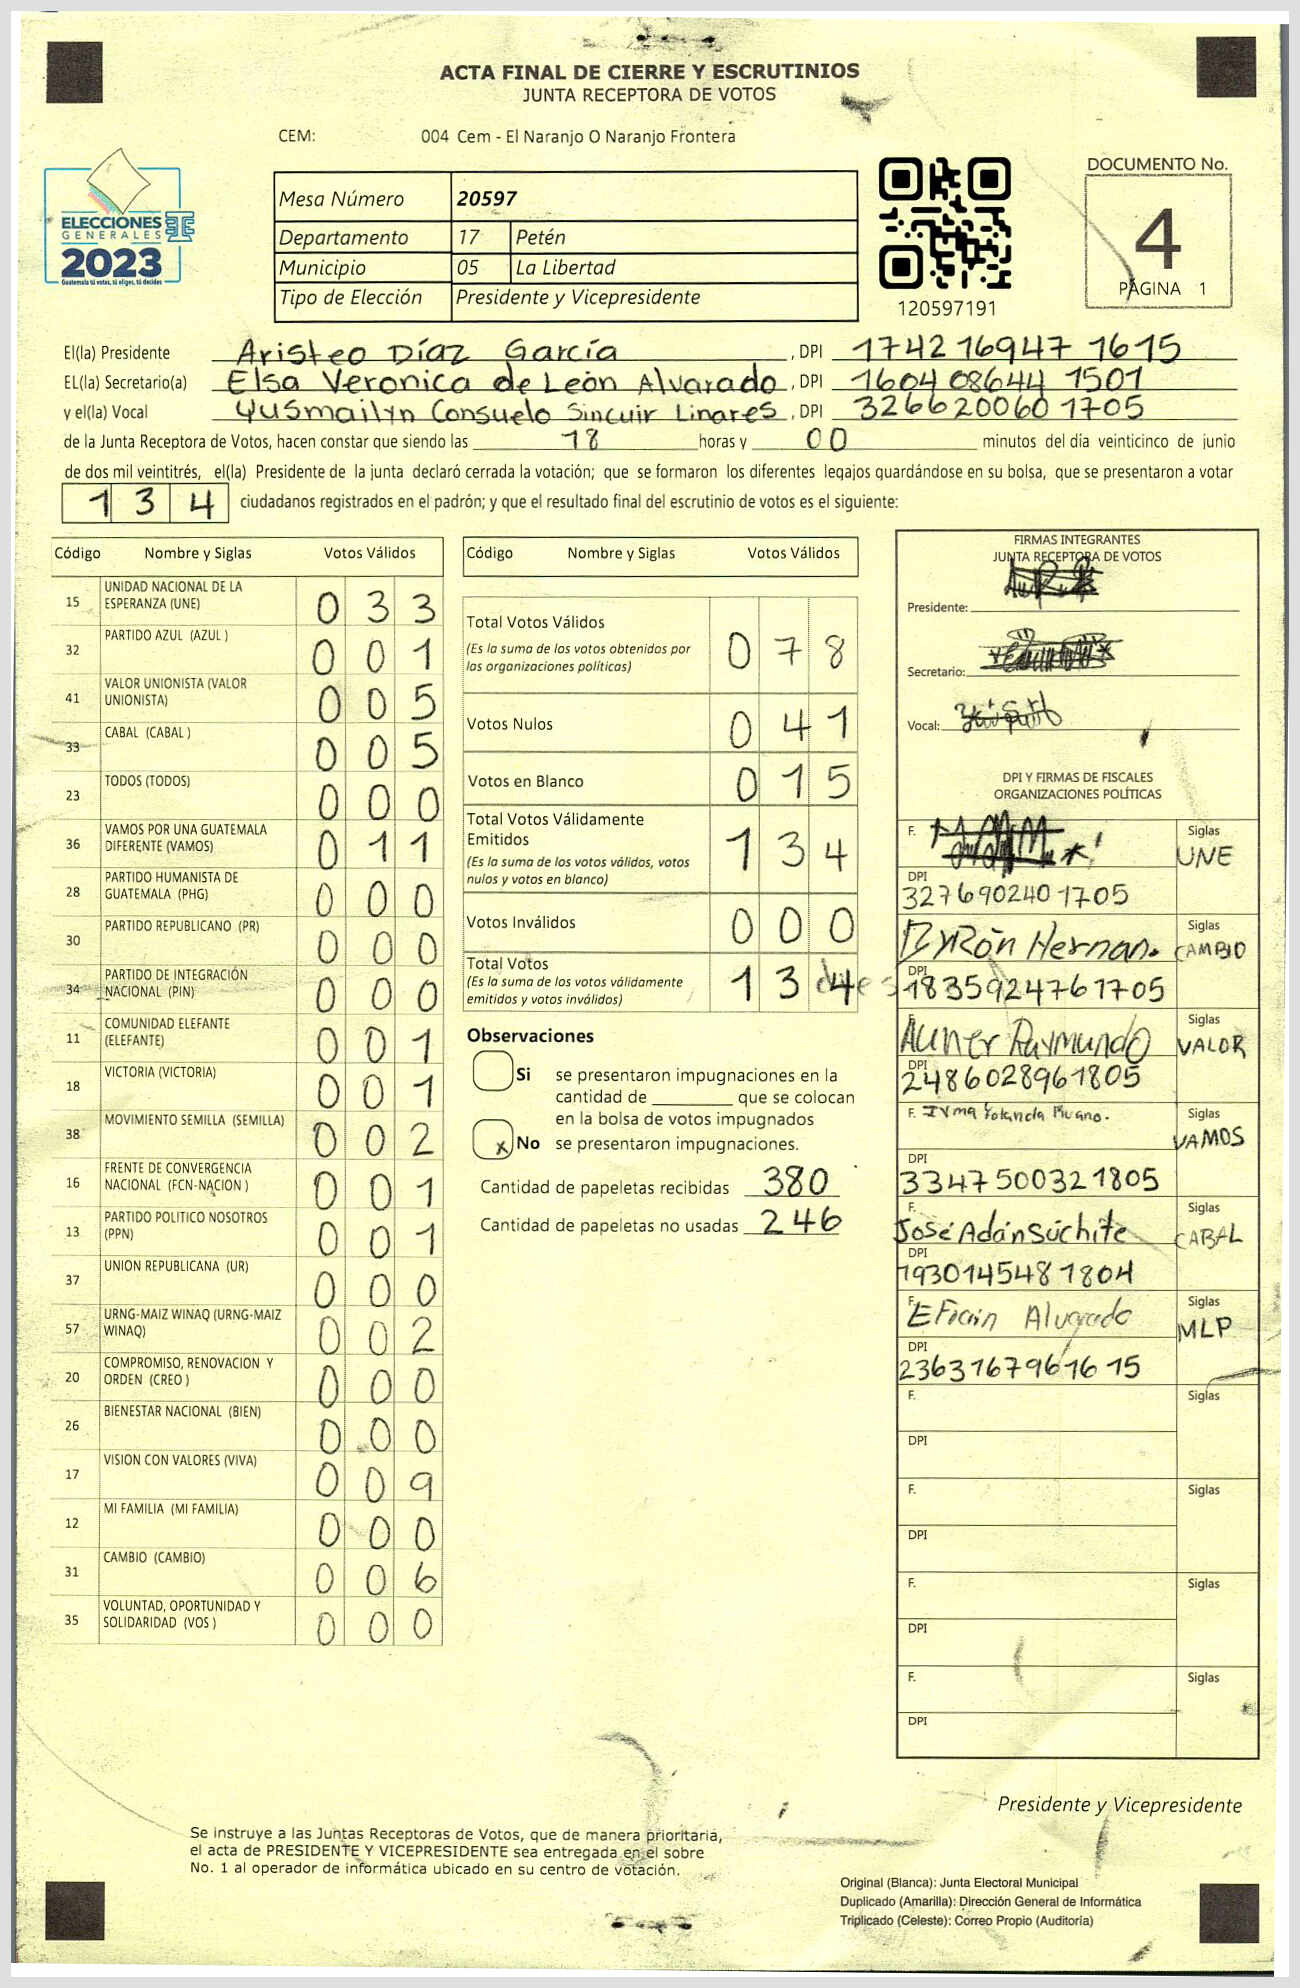 ACTA FINAL DE CIERRE Y ESCRUTINIOS
JUNTA RECEPTORA DE VOTOS
CEM: 004 Cem - El Naranjo O Naranjo Frontera
ELECCIONES
GENERALES
2023
Guatemala tú votas, tú eliges, tú decides
Mesa Número 20597
Departamento 17 Petén
Municipio 05 La Libertad
Tipo de Elección Presidente y Vicepresidente
120597191
DOCUMENTO No.
4
PÁGINA 1
El(la) Presidente Aristeo Díaz García, DPI 174216947 1615
EL(la) Secretario(a) Elsa Veronica de León Alvarado, DPI 160408644 1501
y el(la) Vocal Yusmailyn Consuelo Sincuir Linares, DPI 326620060 1705
de la Junta Receptora de Votos, hacen constar que siendo las 18 horas y 00 minutos del día veinticinco de junio
de dos mil veintitrés, el(la) Presidente de la junta declaró cerrada la votación; que se formaron los diferentes legajos guardándose en su bolsa, que se presentaron a votar
134 ciudadanos registrados en el padrón; y que el resultado final del escrutinio de votos es el siguiente:
Código Nombre y Siglas Votos Válidos
15 UNIDAD NACIONAL DE LA ESPERANZA (UNE) 033
32 PARTIDO AZUL (AZUL ) 001
41 VALOR UNIONISTA (VALOR UNIONISTA) 005
33 CABAL (CABAL ) 005
23 TODOS (TODOS) 000
36 VAMOS POR UNA GUATEMALA DIFERENTE (VAMOS) 011
28 PARTIDO HUMANISTA DE GUATEMALA (PHG) 000
30 PARTIDO REPUBLICANO (PR) 000
34 PARTIDO DE INTEGRACIÓN NACIONAL (PIN) 000
11 COMUNIDAD ELEFANTE (ELEFANTE) 001
18 VICTORIA (VICTORIA) 001
38 MOVIMIENTO SEMILLA (SEMILLA) 002
16 FRENTE DE CONVERGENCIA NACIONAL (FCN-NACION ) 001
13 PARTIDO POLITICO NOSOTROS (PPN) 001
37 UNION REPUBLICANA (UR) 000
57 URNG-MAIZ WINAQ (URNG-MAIZ WINAQ) 002
20 COMPROMISO, RENOVACION Y ORDEN (CREO ) 000
26 BIENESTAR NACIONAL (BIEN) 000
17 VISION CON VALORES (VIVA) 009
12 MI FAMILIA (MI FAMILIA) 000
31 CAMBIO (CAMBIO) 006
35 VOLUNTAD, OPORTUNIDAD Y SOLIDARIDAD (VOS ) 000
Código Nombre y Siglas Votos Válidos
Total Votos Válidos 078
(Es la suma de los votos obtenidos por
las organizaciones políticas)
Votos Nulos 041
Votos en Blanco 015
Total Votos Válidamente
Emitidos 134
(Es la suma de los votos válidos, votos
nulos y votos en blanco)
Votos Inválidos 000
Total Votos 134
(Es la suma de los votos válidamente
emitidos y votos inválidos)
Observaciones
Si se presentaron impugnaciones en la
cantidad de ________ que se colocan
en la bolsa de votos impugnados
x No se presentaron impugnaciones.
Cantidad de papeletas recibidas 380
Cantidad de papeletas no usadas 246
FIRMAS INTEGRANTES
JUNTA RECEPTORA DE VOTOS
Presidente:
Secretario:
Vocal:
DPI Y FIRMAS DE FISCALES
ORGANIZACIONES POLÍTICAS
F. Siglas UNE
DPI 327690240 1705
F. Byrón Hernan. Siglas CAMBIO
DPI 1835924761705
F. Auner Raymundo Siglas VALOR
DPI 2486028961805
F. Irma Yolanda Siglas VAMOS
DPI 3347500321805
F. José Adán Súchite Siglas CABAL
DPI 1930145481804
F. Efrain Alvarado Siglas MLP
DPI 2363167961615
F. Siglas
DPI
F. Siglas
DPI
F. Siglas
DPI
F. Siglas
DPI
Presidente y Vicepresidente
Se instruye a las Juntas Receptoras de Votos, que de manera prioritaria,
el acta de PRESIDENTE Y VICEPRESIDENTE sea entregada en el sobre
No. 1 al operador de informática ubicado en su centro de votación.
Original (Blanca): Junta Electoral Municipal
Duplicado (Amarilla): Dirección General de Informática
Triplicado (Celeste): Correo Propio (Auditoría)